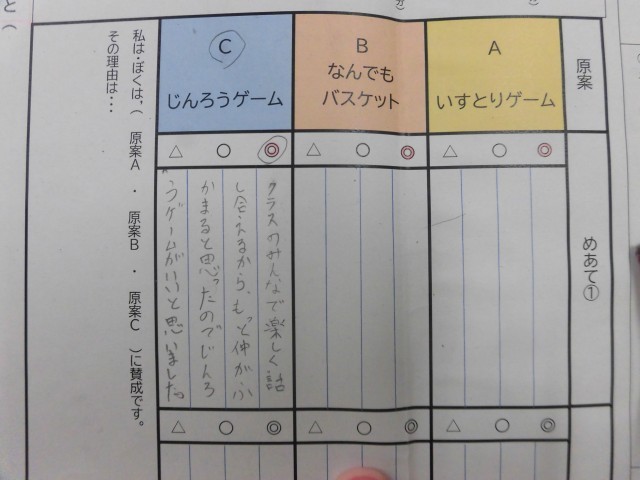 原案
めあて①
A
いすとりゲーム
◎ ○ △
◎ ○ △
B
なんでも
バスケット
◎ ○ △
◎ ○ △
C
じんろうゲーム
◎ ○ △
クラスのみんなで楽しく話
し合えるから、もっと仲がふ
かまると思ったのでじんろ
うゲームがいいと思いました。
◎ ○ △
私は・ぼくは、( 原案A ・ 原案B ・ 原案C )に賛成です。
その理由は・・・
と(